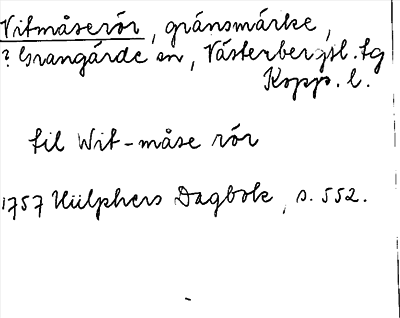 Vitmåserör, gränsmärke,
? Grangärde sn, Västerbergsl. tg
Kopp. l.
til Wit-måse rör
1757 Hülphers Dagbok, s. 552.